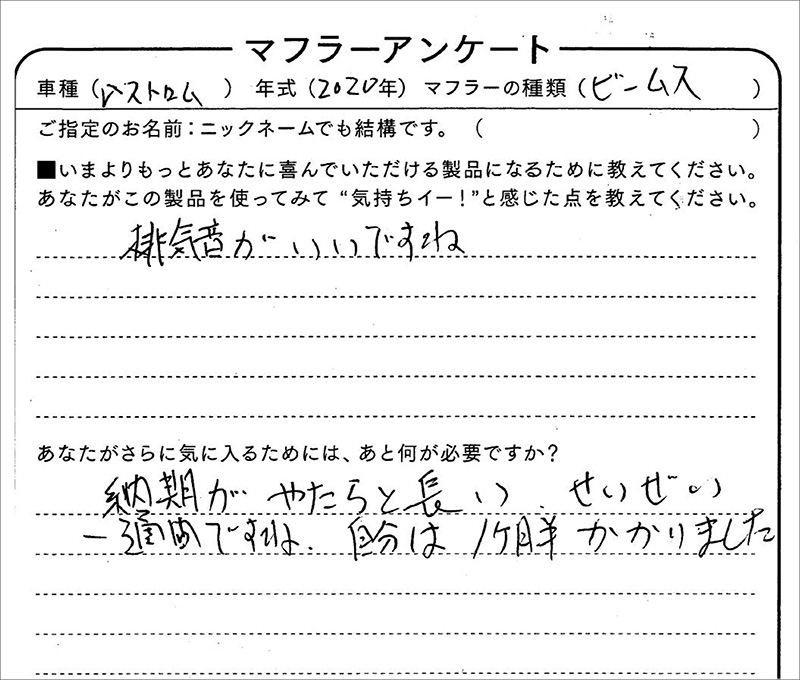 マフラーアンケート
車種（Vストロム） 年式（2020年） マフラーの種類（ビームス）
ご指定のお名前：ニックネームでも結構です。（ ）
■いまよりもっとあなたに喜んでいただける製品になるために教えてください。
あなたがこの製品を使ってみて“気持ちイー！”と感じた点を教えてください。
排気音がいいですね
あなたがさらに気に入るためには、あと何が必要ですか？
納期がやたらと長い、せいぜい
一週間ですね、自分は1ケ月半かかりました